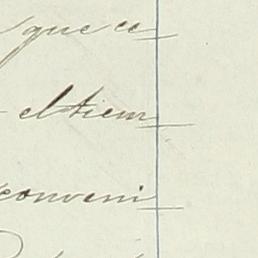 que ce
el tiem
conveni